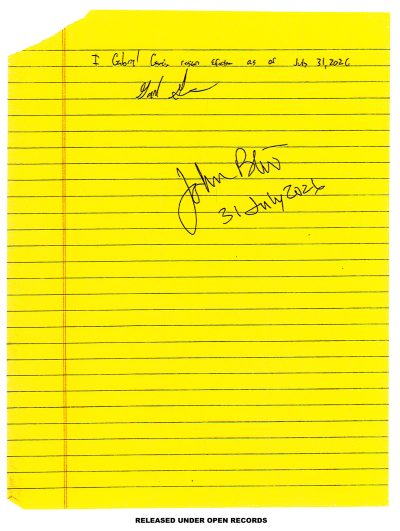 I Gabriel Garcia resign effective as of July 31, 2026
John
31 July 2026
RELEASED UNDER OPEN RECORDS